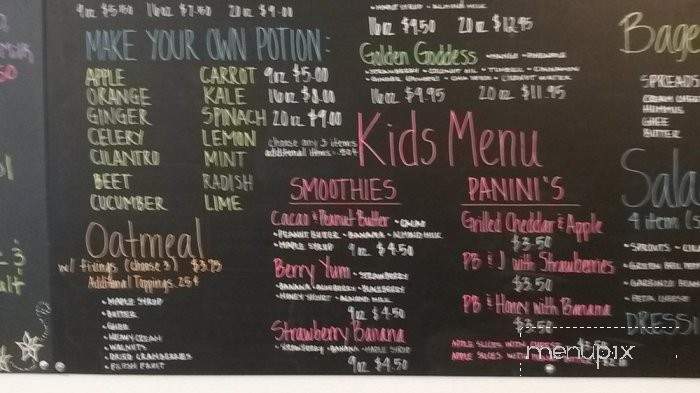 9oz $5.50 16oz $7.50 20oz $9.00
MAKE YOUR OWN POTION:
APPLE CARROT 9oz $5.00
ORANGE KALE 16oz $8.00
GINGER SPINACH 20oz $9.00
CELERY LEMON choose any 5 items
CILANTRO MINT additional items
BEET RADISH
CUCUMBER LIME
Oatmeal
w/ fixings (choose 3) $3.75
Additional Toppings .25¢
• MAPLE SYRUP
• BUTTER
• GHEE
• HEAVY CREAM
• WALNUTS
• DRIED CRANBERRIES
• FRESH FRUIT
• MAPLE SYRUP • ALMOND MILK
16oz $9.50 20oz $12.95
Golden Goddess • MANGO • PINEAPPLE
• STRAWBERRY • COCONUT OIL • TUMERIC • CINNAMON
16oz $9.95 20oz $11.95
Kids Menu
SMOOTHIES
Cacao & Peanut Butter • CACAO
• PEANUT BUTTER • BANANA • ALMOND MILK
• MAPLE SYRUP 9oz $4.50
Berry Yum • STRAWBERRY
• BANANA • BLUEBERRY • RASPBERRY
• HONEY YOGURT • ALMOND MILK
9oz $4.50
Strawberry Banana
• STRAWBERRY • BANANA • MAPLE SYRUP
9oz $4.50
PANINI'S
Grilled Cheddar & Apple
$3.50
PB & J with Strawberries
$3.50
PB & Honey with Banana
$3.50
APPLE SLICES WITH CHEESE
APPLE SLICES WITH
menupix
Bage
SPREADS
CREAM CHEE
HUMMUS
GHEE
BUTTER
Sala
4 item (s
• SPROUTS • CU
• GREEN BELL PEP
• GARBANZO BEAN
• FETA CHEESE
DRESSI